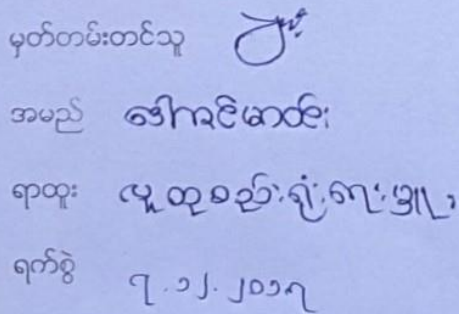 မှတ်တမ်းတင်သူ
အမည် ဒေါ်ခင်မာထွေး
ရာထူး လူထုစည်းရုံးရေးမှူး
ရက်စွဲ ၇.၁၂.၂၀၁၇